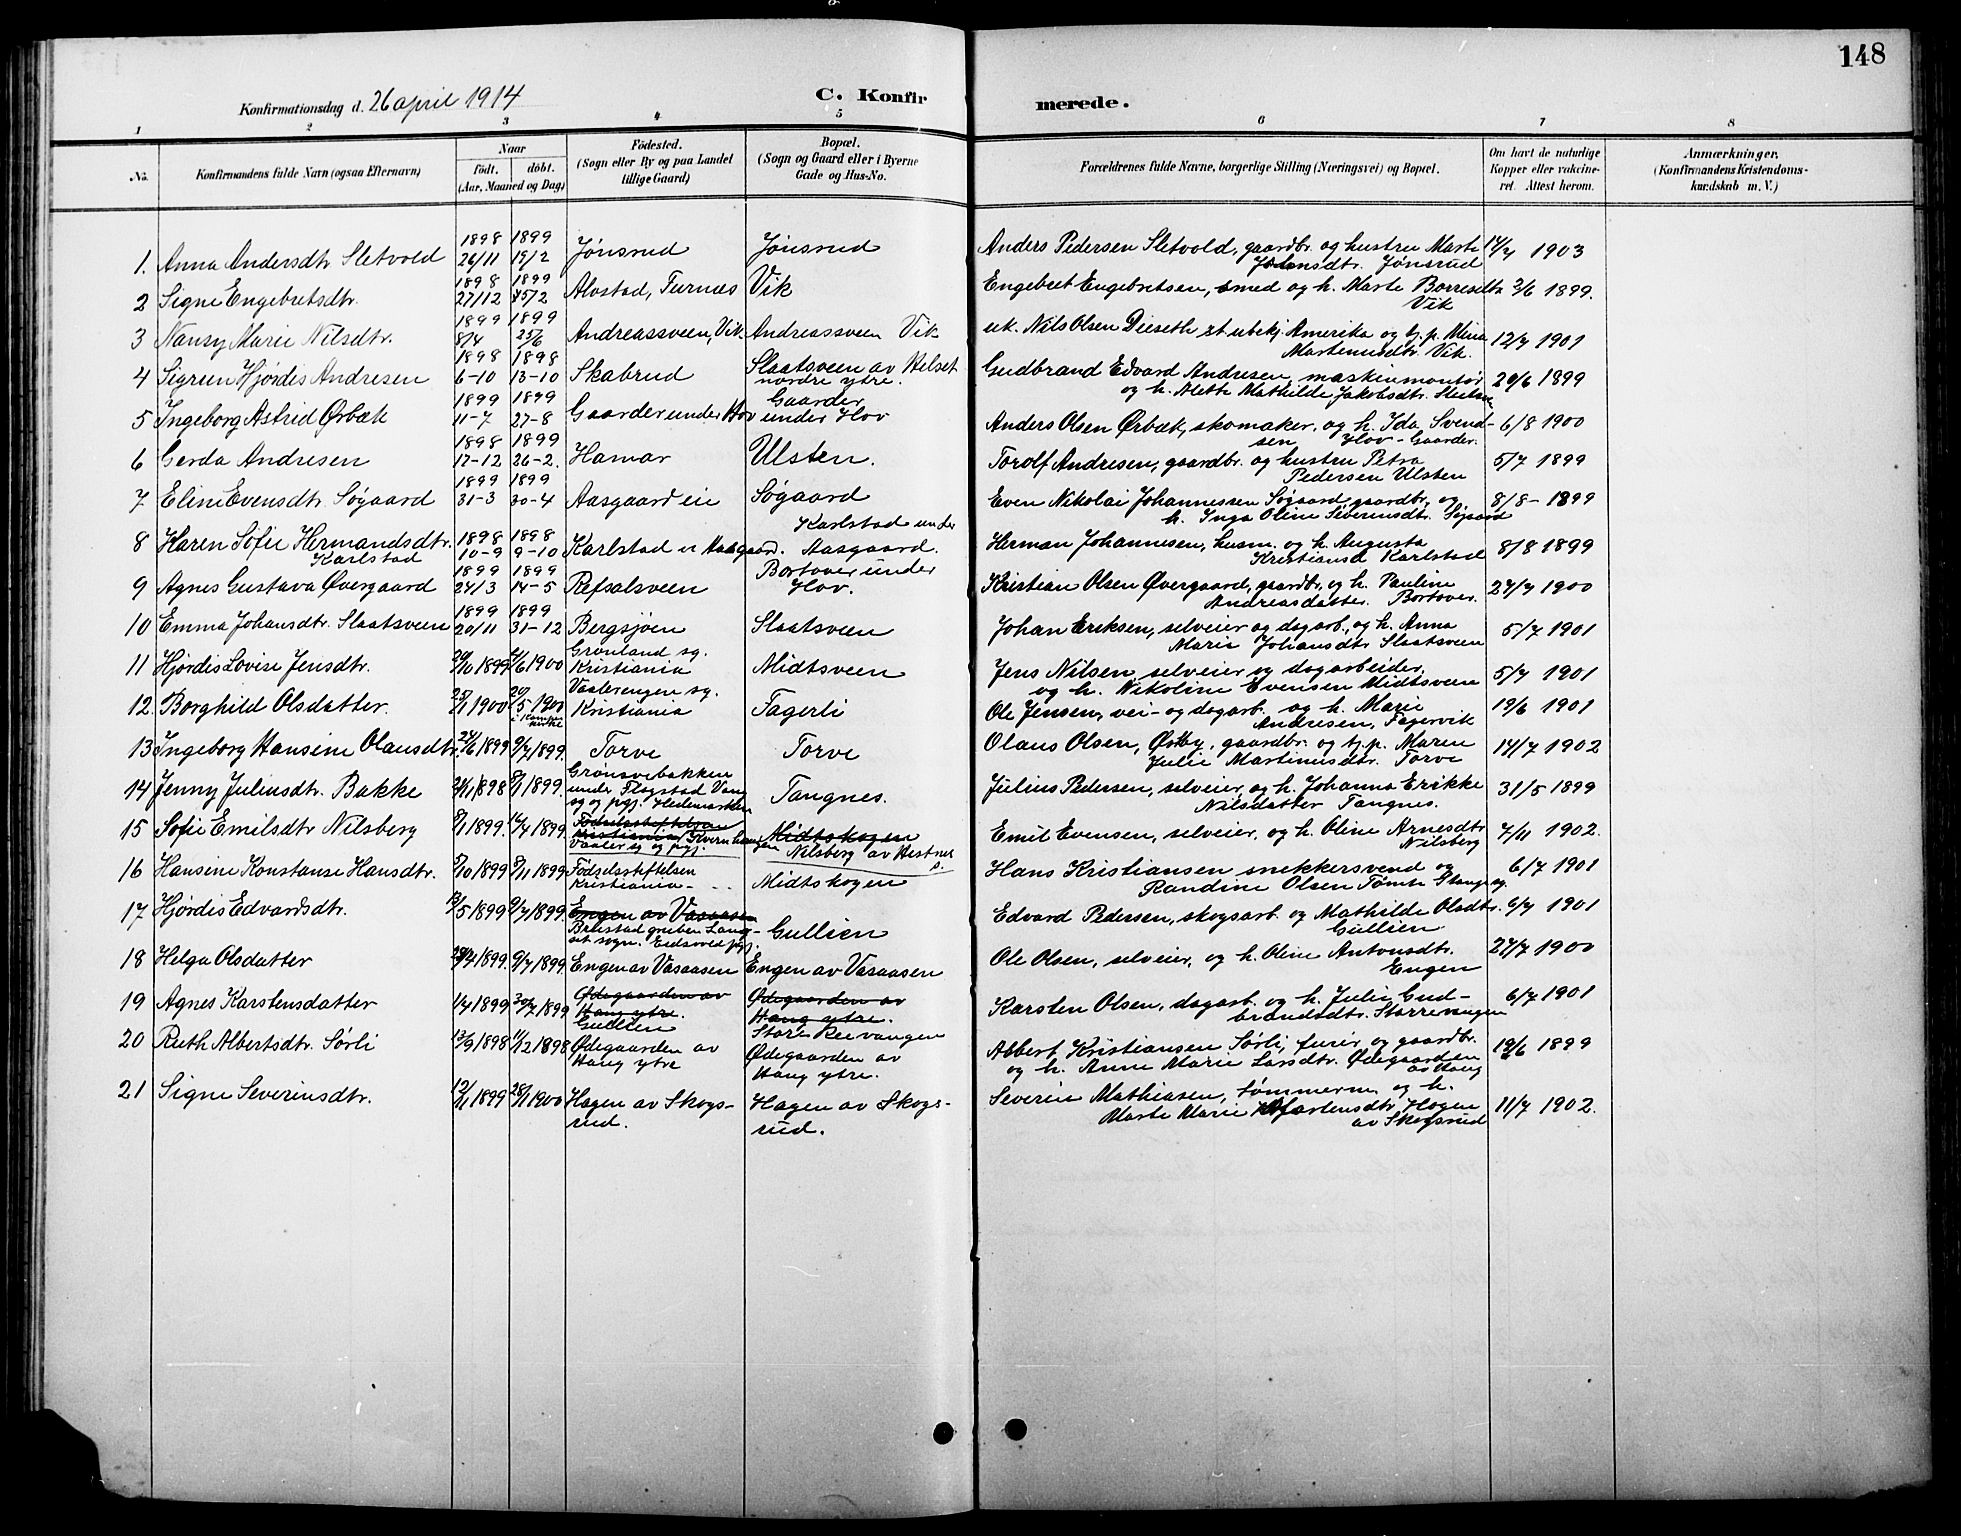 148
Konfirmationsdag d. 26 april 1914 C. Konfirmerede.
1 2 3 4 5 6 7 8
No. Konfirmandens fulde Navn (ogsaa Efternavn) Naar født. døbt. (Aar, Maaned og Dag) Fødested. (Sogn eller By og paa Landet tillige Gaard) Bopæl. (Sogn og Gaard eller i Byerne Gade og Hus-No. Forældrenes fulde Navne, borgerlige Stilling (Næringsvei) og Bopæl. Om havt de naturlige Kopper eller vakcineret. Attest herom. Anmærkninger. (Konfirmandens Kristendomskundskab m. V.)
1. Anna Andersdtr Sletvold 1898 26/11 1899 19/2 Jønsrud Jønsrud Anders Pedersen Sletvold, gaardbr. og hustru Marte Johnsdtr. Jønsrud 14/7 1903
2 Signe Engebretsdtr. 1898 27/12 1899 /2 Alvstad, Furnes Vik Engebret Engebretsen, smed og h. Marte Borresdtr Vik 2/6 1899.
3 Nansy Marie Nilsdtr. 1899 8/4 1899 25/6 Andreassveen, Vik. Andreassveen Vik uk. Nils Olsen Dieseth zt ubekj. Amerika og tj. p. Mina Martinusdtr. Vik. 12/7 1901
4 Sigrun Hjørdis Andresen 1898 6-10 1898 13-10 Skabrud Slaatsveen av Helset nordre ytre. Gudbrand Edvard Andresen, maskinmontør og h. Meth Mathilde Jakobsdtr. 20/6 1899
5 Ingeborg Astrid Ørbæk 1899 11-7 1899 27-8 Gaarder under Hov Gaarder under Hov Anders Olsen Ørbæk, skomaker, og h. Ida Svendsen Hov-Gaarder. 6/8 1900
6 Gerda Andresen 1898 17-12 1899 26-2. Hamar Ulsten. Torolf Andresen, gaardbr. og hustru Petra Pedersen Ulsten 5/7 1899
7 Eline Evensdtr. Søgaard 1899 31-3 1899 30-4 Aasgaard eie Søgaard Even Nikolai Johannessen Søgaard gaardbr. og h. Inga Oline Severinsdtr. Søgaard 8/8-1899
8 Haren Sofie Hermandsdtr. Karlstad 1898 10-9 1898 9-10 Karlstad u Aasgaard. Karlstad under Aasgaard. Herman Johannesen, husm. og h. Augusta Kristiansd Karlstad 8/8 1899
9 Agnes Gustava Øvergaard 1899 24/3 1899 14-5 Refsalsveen Bortover under Hov. Kristian Olsen Øvergaard, gaardbr. og h. Pauline Andreasdatter. Bortover. 27/7 1900
10 Emma Johansdtr. Slaatsveen 1899 20/11 1899 31-12 Bergsjøen Slaatsveen Johan Eriksen, selveier og dagarb., og h. Anna Marie Johansdtr Slaatsveen 5/7 1901
11 Hjørdis Lovise Jensdtr. /10 1899 /6 1900 Grønland sg. Kristiania Midtsveen Jens Nilsen, selveier og dagarbeider, og h. Nikoline Evensen Midtsveen 5/7 1901
12. Borghild Olsdatter. 25/1 1900 20/5 1900 Vaalerengen sg. Kristiania Fagerli Ole Jensen, vei- og dagarb. og h. Marie Andresen, Fagervik 19/6 1901
13 Ingeborg Hansine Olausdtr. 24/6 1899 9/7 1899. Torve Torve Olaus Olsen, Østby, gaardbr. og tj. p. Maren Julie Martinusdtr. Torve 14/7 1902
14 Jenny Juliusdtr. Bakke /11 1898 8/1 1899. Grønsvebakken under Flagstad Vang sg og pgj. Hedemarken Tangnes. Julius Pedersen, selveier, og h. Johanna Erikke Nilsdatter Tangnes. 31/5 1899
15 Sofie Emilsdtr Nilsberg /1 1899. /4 1899 Fødselsstiftelsen Kristiania Vaaler sg og pgj. Midtskogen Nilsberg av Hestnes Emil Evensen, selveier, og h. Oline Arnesdtr Nilsberg 7/11 1902.
16 Hansine Konstanse Hansdtr. /10 1899 5/11 1899 Fødselsstiftelsen Kristiania - Midtskogen Hans Kristiansen snekkersvend og Randine Olsen Tømte Stange sg. 6/7 1901
17 Hjørdis Edvardsdtr. /5 1899 9/7 1899. Engen av Vasaasen Langset sogn. Eidsvold pgj. Gullien Edvard Pedersen, skogsarb. og Mathilde Olsdtr. Gullien 6/7 1901
18 Helga Olsdatter /4 1899. 9/7 1899. Engen av Vasaasen Engen av Vasaasen Ole Olsen, selveier, og h. Oline Antonsdtr. Engen 27/7 1900
19 Agnes Karstensdatter 1/7 1899 30/7 1899 Ødegaarden av Haug ytre. Gullien Ødegaarden av Haug ytre. Store Reevangen Karsten Olsen, dagarb. og h. Julie Gudbrandsdtr. Storrevangen 6/7 1901
20 Ruth Albertsdtr. Sørli 13/9 1898 11/12 1898 Ødegaarden av Haug ytre Ødegaarden av Haug ytre. Albert Kristiansen Sørli, furer og gaardbr. og h. Anne Marie Larsdtr. Ødegaarden av Haug 19/6 1899
21 Signe Severinsdtr. 12/11 1899 28/1 1900 Hagen av Skogsrud. Hagen av Skogsrud. Severin Mathiasen, tømmerm. og h. Marte Marie Martensdtr. Hagen av Skogsrud 11/7 1902.